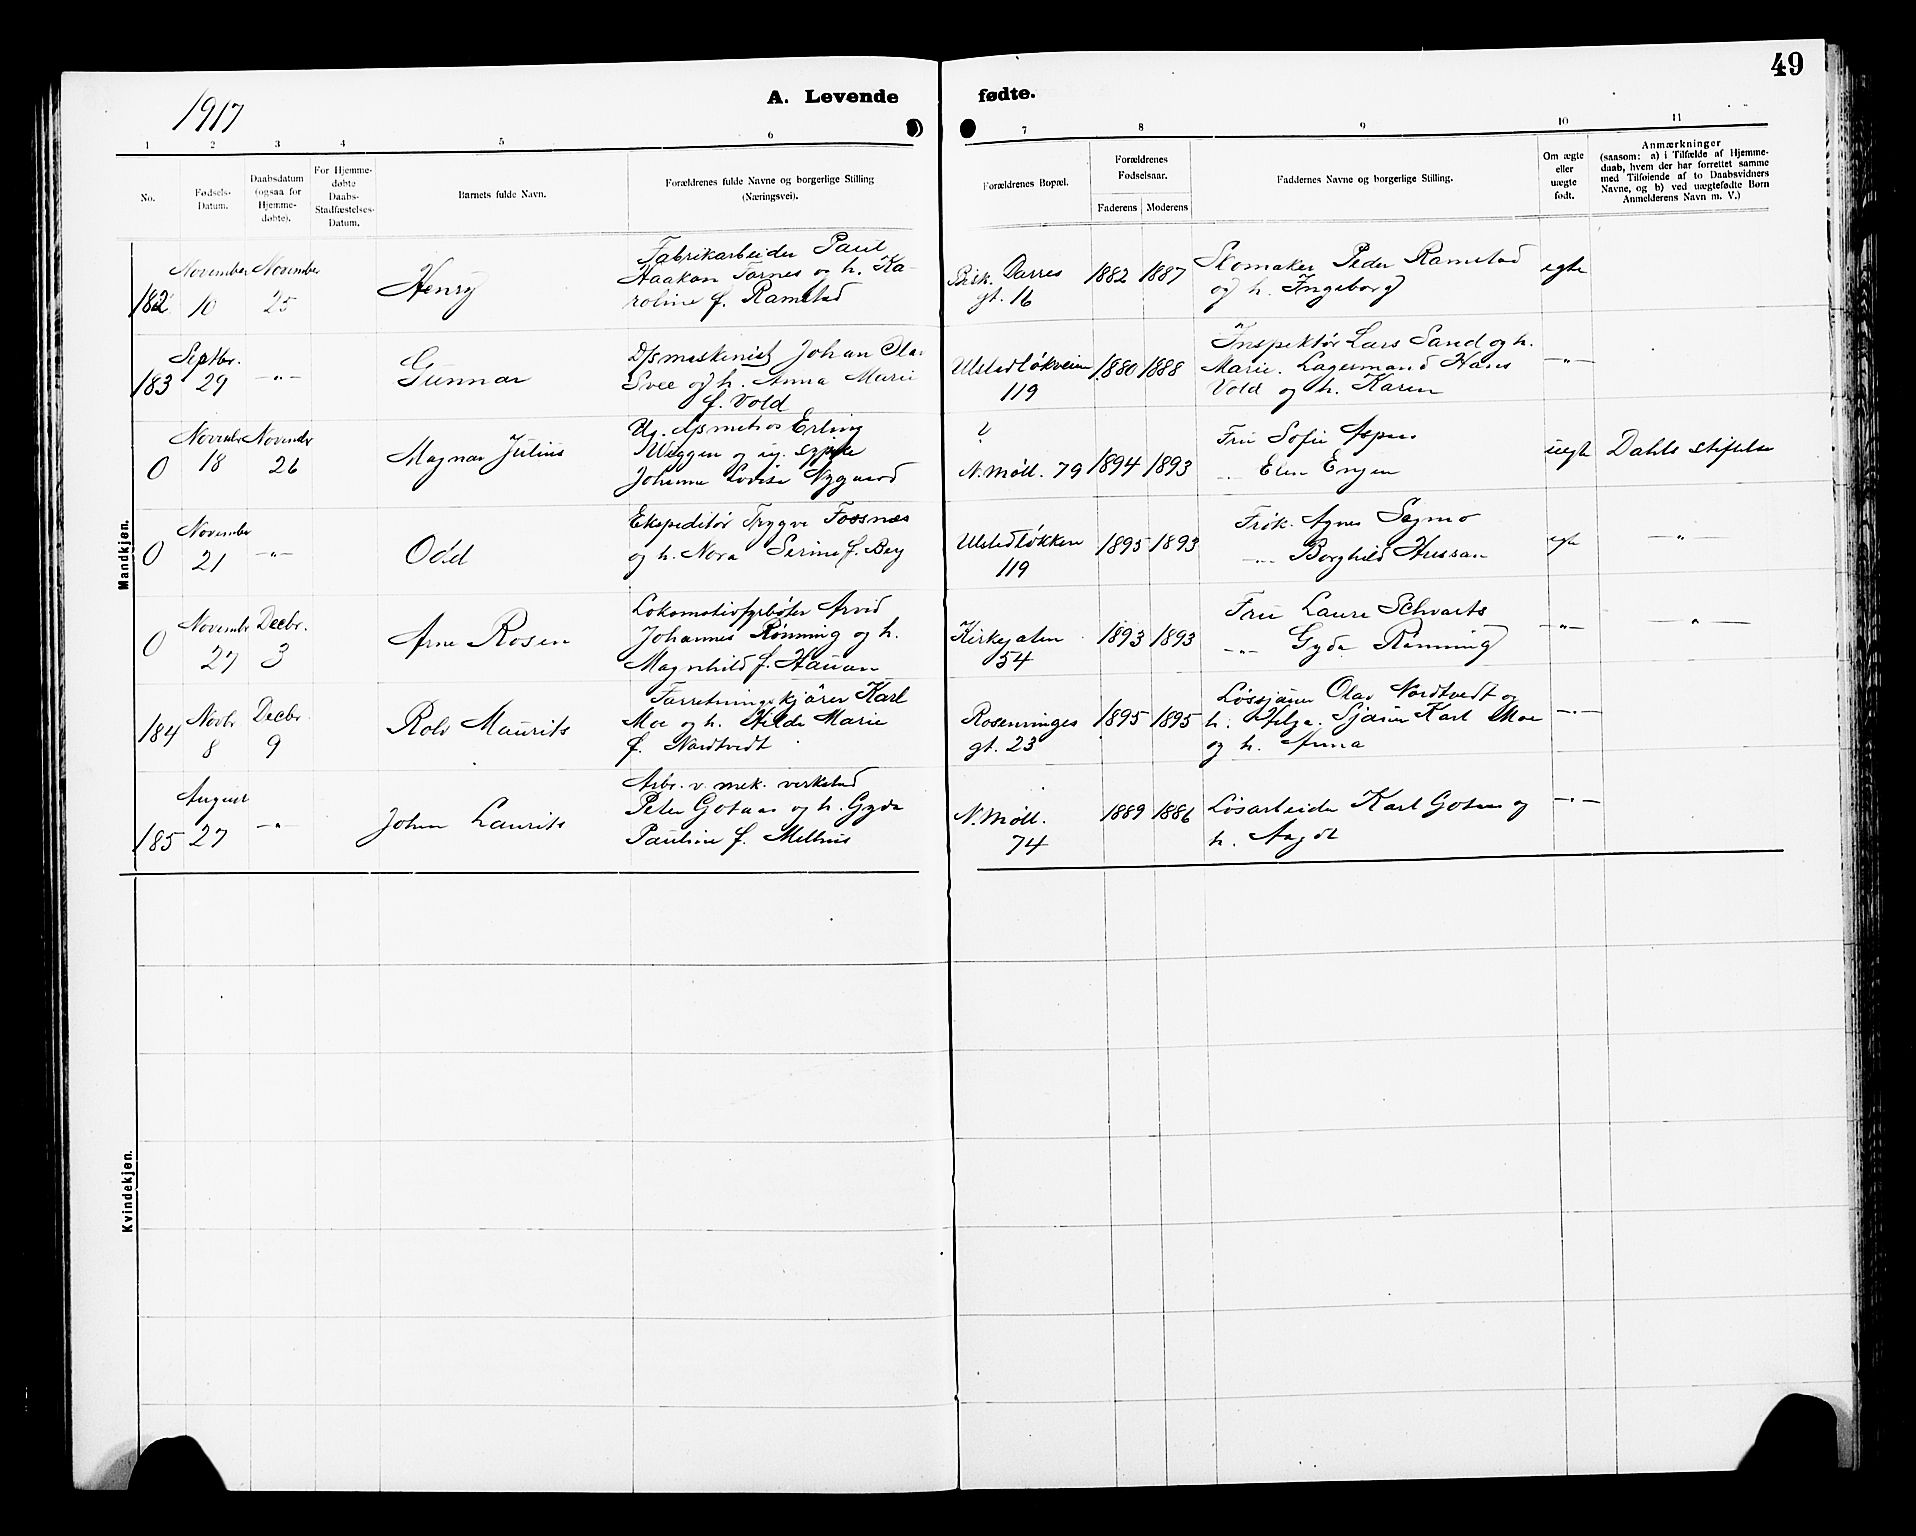 49
1917
A. Levende fødte.
1 2 3 4 5 6 7 8 9 10 11
No.
Fødsels-
Datum.
Daabsdatum
(ogsaa for
Hjemme-
døbte).
For Hjemme-
døbte
Daabs-
Stadfæstelses-
Datum.
Barnets fulde Navn.
Forældrenes fulde Navne og borgerlige Stilling
(Næringsvei).
Forældrenes Bopæl.
Forældrenes
Fødselsaar.
Faderens Moderens
Faddernes Navne og borgerlige Stilling.
Om ægte
eller
uægte
født.
Anmærkninger
(saasom: a) i Tilfælde af Hjemme-
daab, hvem der har forrettet samme
med Tilføiende af to Daabsvidners
Navne, og b) ved uægtefødte Børn
Anmelderens Navn m. V.)
Mandkjøn.
182
November
10
November
25
Henry
Fabrikarbeider Paul
Haakon Tarnes og h. Ka-
roline f. Ramstad
Bisk. Darres
gt. 16
1882 1887
Skomaker Peder Ramstad
og h. Ingeborg
egte
183
Septbr.
29
—"—
Gunnar
D/s maskenist Johan Olav
Svee og h. Anna Marie
f. Vold
Ulstadløkveien
119
1880 1888
Inspektør Lars Sand og h.
Marie. Lagermand Hans
Vold og h. Karen
—"—
0
Novembr
18
Novembr
26
Magnar Julius
Ug. Erling
Weggen og ug. pike
Johanne Lovise Nygaard
?
N. Møll. 79
1894 1893
Fru Sofie Aspen
—"— Engen
uegte
Dahls stiftelse
0
November
21
—"—
Odd
Ekspeditør Trygve Fossnæs
og h. Nora Serine f. Bey
Ulstadløkken
119
1895 1893
Frøk. Agnes Sagmo
—"— Borghild Hussan
egte
—"—
0
Novembr
27
Decbr.
3
Arne Rosen
Lokomotivfyrbøter Arvid
Johannes Rønning og h.
Magnhild f. Hauan
Kirkegaten
54
1893 1893
Fru Laura Schvarts
—"— Gyda Rønning
—"—
—"—
184
Novbr
8
Decbr.
9
Rolv Maurits
Forretningskjører Karl
Moe og h. Hilda Marie
f. Nordtvedt
Rosenninges
gt. 23
1895 1895
Olav Nordtvedt og
h. Helga. Karl Moe
og h. Anna
—"—
185
August
27
—"—
Johan Laurits
Arb. v. mek. verksted
Peter Gotaas og h. Gyda
Pauline f. Melhus
N. Møll.
74
1889 1886
Løsarbeider Karl Gotaas og
h. Aagot
—"—
Kvindekjøn.